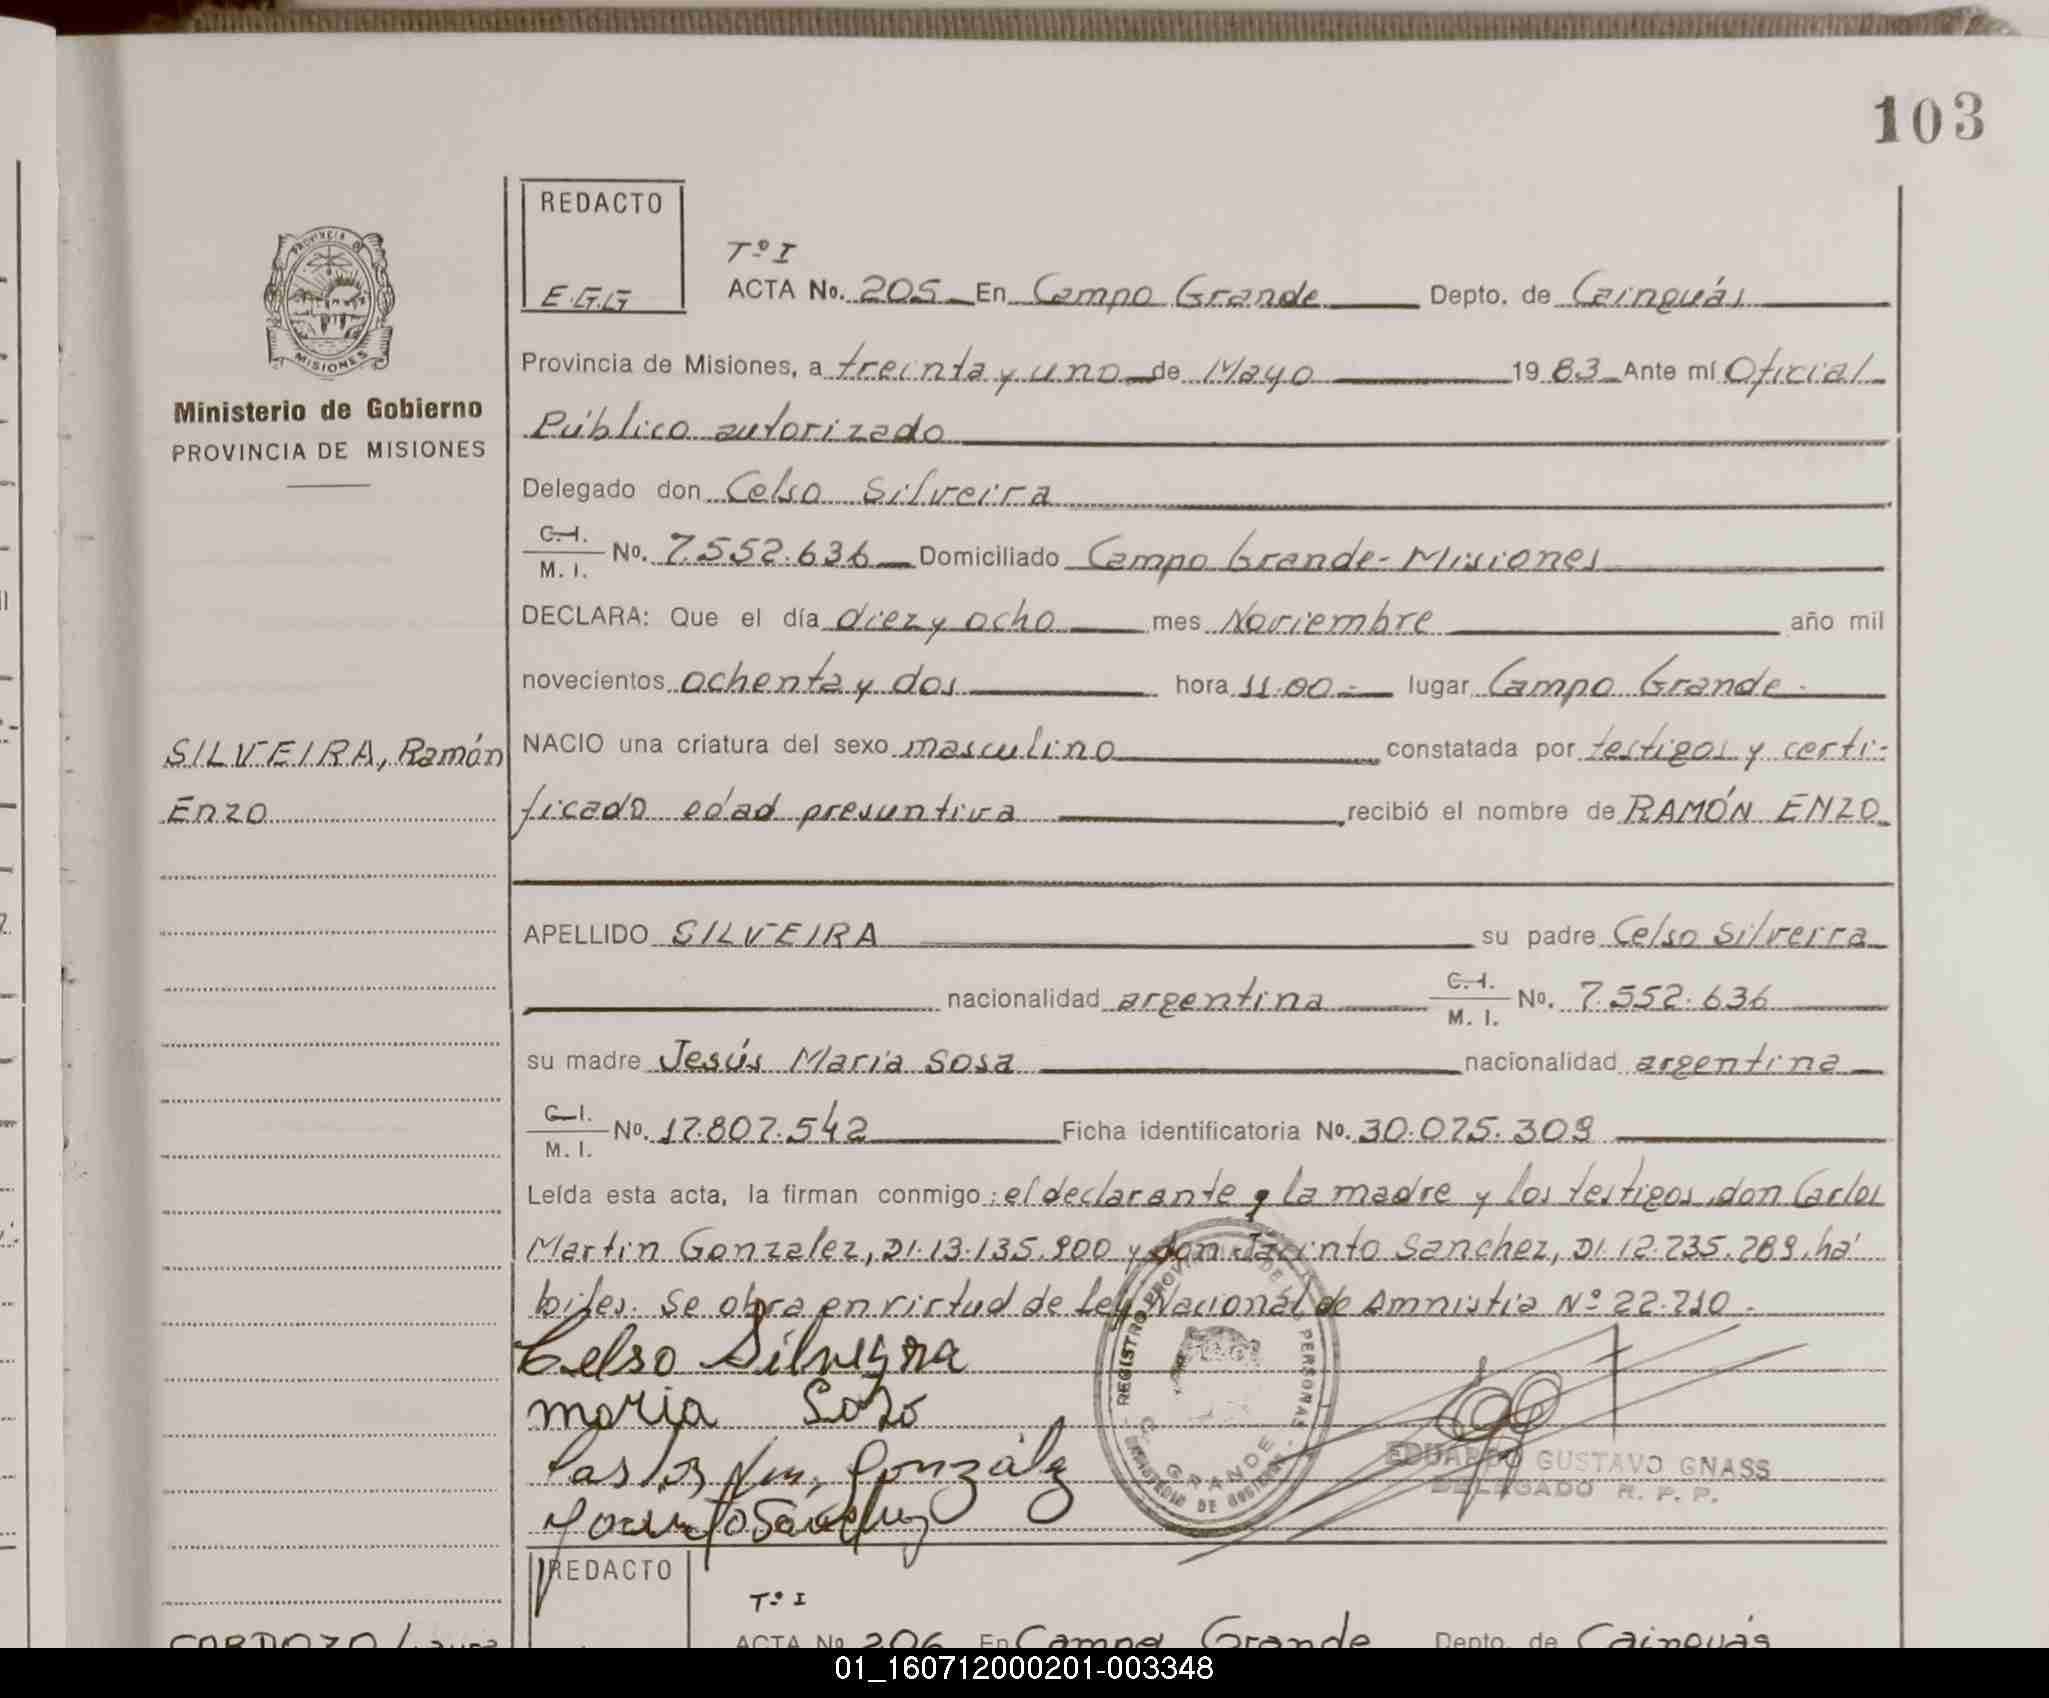 103
REDACTO
E.G.G
Tº I
ACTA No. 205 En Campo Grande Depto. de Cainguás
Provincia de Misiones, a treinta y uno de Mayo 1983 Ante mí Oficial
Público autorizado
Delegado don Celso Silveira
C.I. M. I. No. 7.552.636 Domiciliado Campo Grande - Misiones
DECLARA: Que el día diez y ocho mes Noviembre año mil
novecientos ochenta y dos hora 11.00.- lugar Campo Grande.-
NACIO una criatura del sexo masculino constatada por testigos y certi-
ficado edad presuntiva recibió el nombre de RAMÓN ENZO
APELLIDO SILVEIRA su padre Celso Silveira
nacionalidad argentina C.I. M. I. No. 7.552.636
su madre Jesús María Sosa nacionalidad argentina
C.I. M. I. No. 17.807.542 Ficha identificatoria No. 30.075.309
Leída esta acta, la firman conmigo: el declarante, la madre y los testigos don Carlos
Martin Gonzalez, DI. 13.135.900 y don Jacinto Sanchez, DI. 12.735.289, há
biles. Se obra en virtud de Ley Nacional de Amnistia Nº 22.710.-
Celso Silveyra
maria Soza
González
REGISTRO PROVINCIAL DE LAS PERSONAS
C. GRANDE
MINISTERIO DE GOBIERNO
EDUARDO GUSTAVO GNASS
DELEGADO R. P. P.
PROVINCIA DE
MISIONES
Ministerio de Gobierno
PROVINCIA DE MISIONES
SILVEIRA, Ramón
Enzo
REDACTO
Tº I
ACTA No 206 En Campo Grande Depto. de Cainguás
CARDOZO
01_160712000201-003348